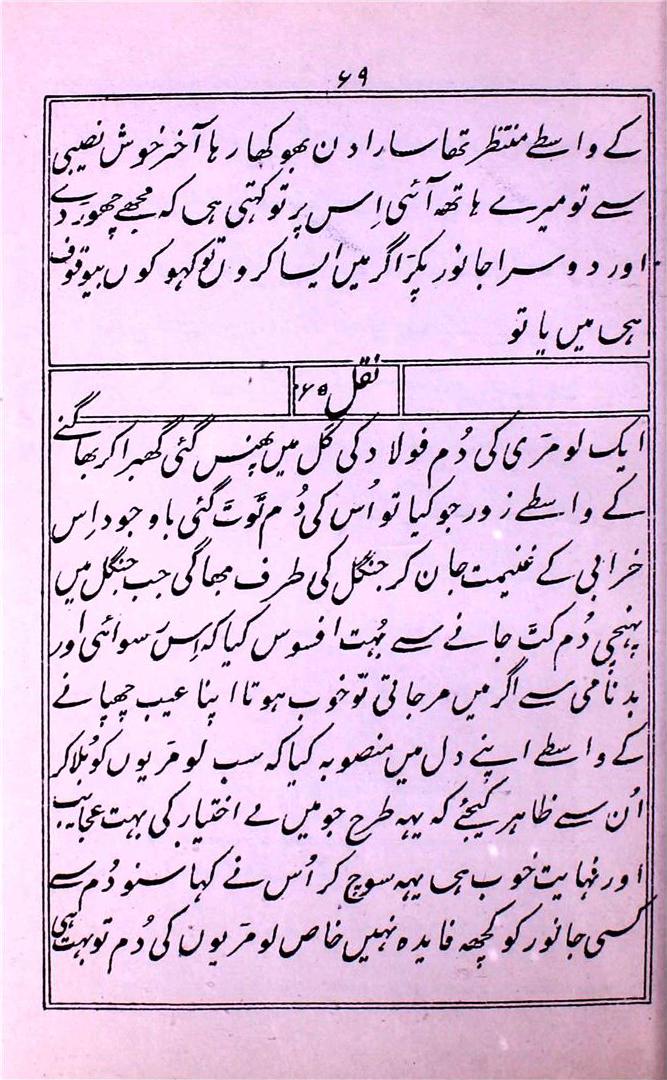 ۶۹
کے واسطے منتظر تھا سارا دن بھوکھا رہا آخر خوش نصیبی
سے تو میرے ہاتھ آئی اِس پر تو کہتی ہی کہ مجھے چھوڑ دے
اور دوسرا جانور پکڑ اگر میں ایسا کروں تو کہو کون بیوقوف
ہی میں یا تو
نقل ۶۵
ایک لومڑی کی دُم فولاد کی کل میں پھنس گئی گھبرا کر بھاگنے
کے واسطے زور جو کیا تو اُس کی دُم ٹوٹ گئی باوجود اِس
خرابی کے غنیمت جان کر جنگل کی طرف بھاگی جب جنگل میں
پہنچی دُم کٹ جانے سے بہُت افسوس کیا کہ اِس رسوائی اور
بدنامی سے اگر میں مرجاتی تو خوب ہوتا اپنا عیب چھپانے
کے واسطے اپنے دل میں منصوبہ کیا کہ سب لومڑیوں کو بُلا کر
اُن سے ظاہر کیجئے کہ یہہ طرح جو میں نے اختیار کی بہت عجایب
اور نہایت خوب ہی یہہ سوچ کر اُس نے کہا سنو دُم سے
کسی جانور کو کچھہ فایدہ نہیں خاص لومڑیوں کی دُم تو بہت ہی